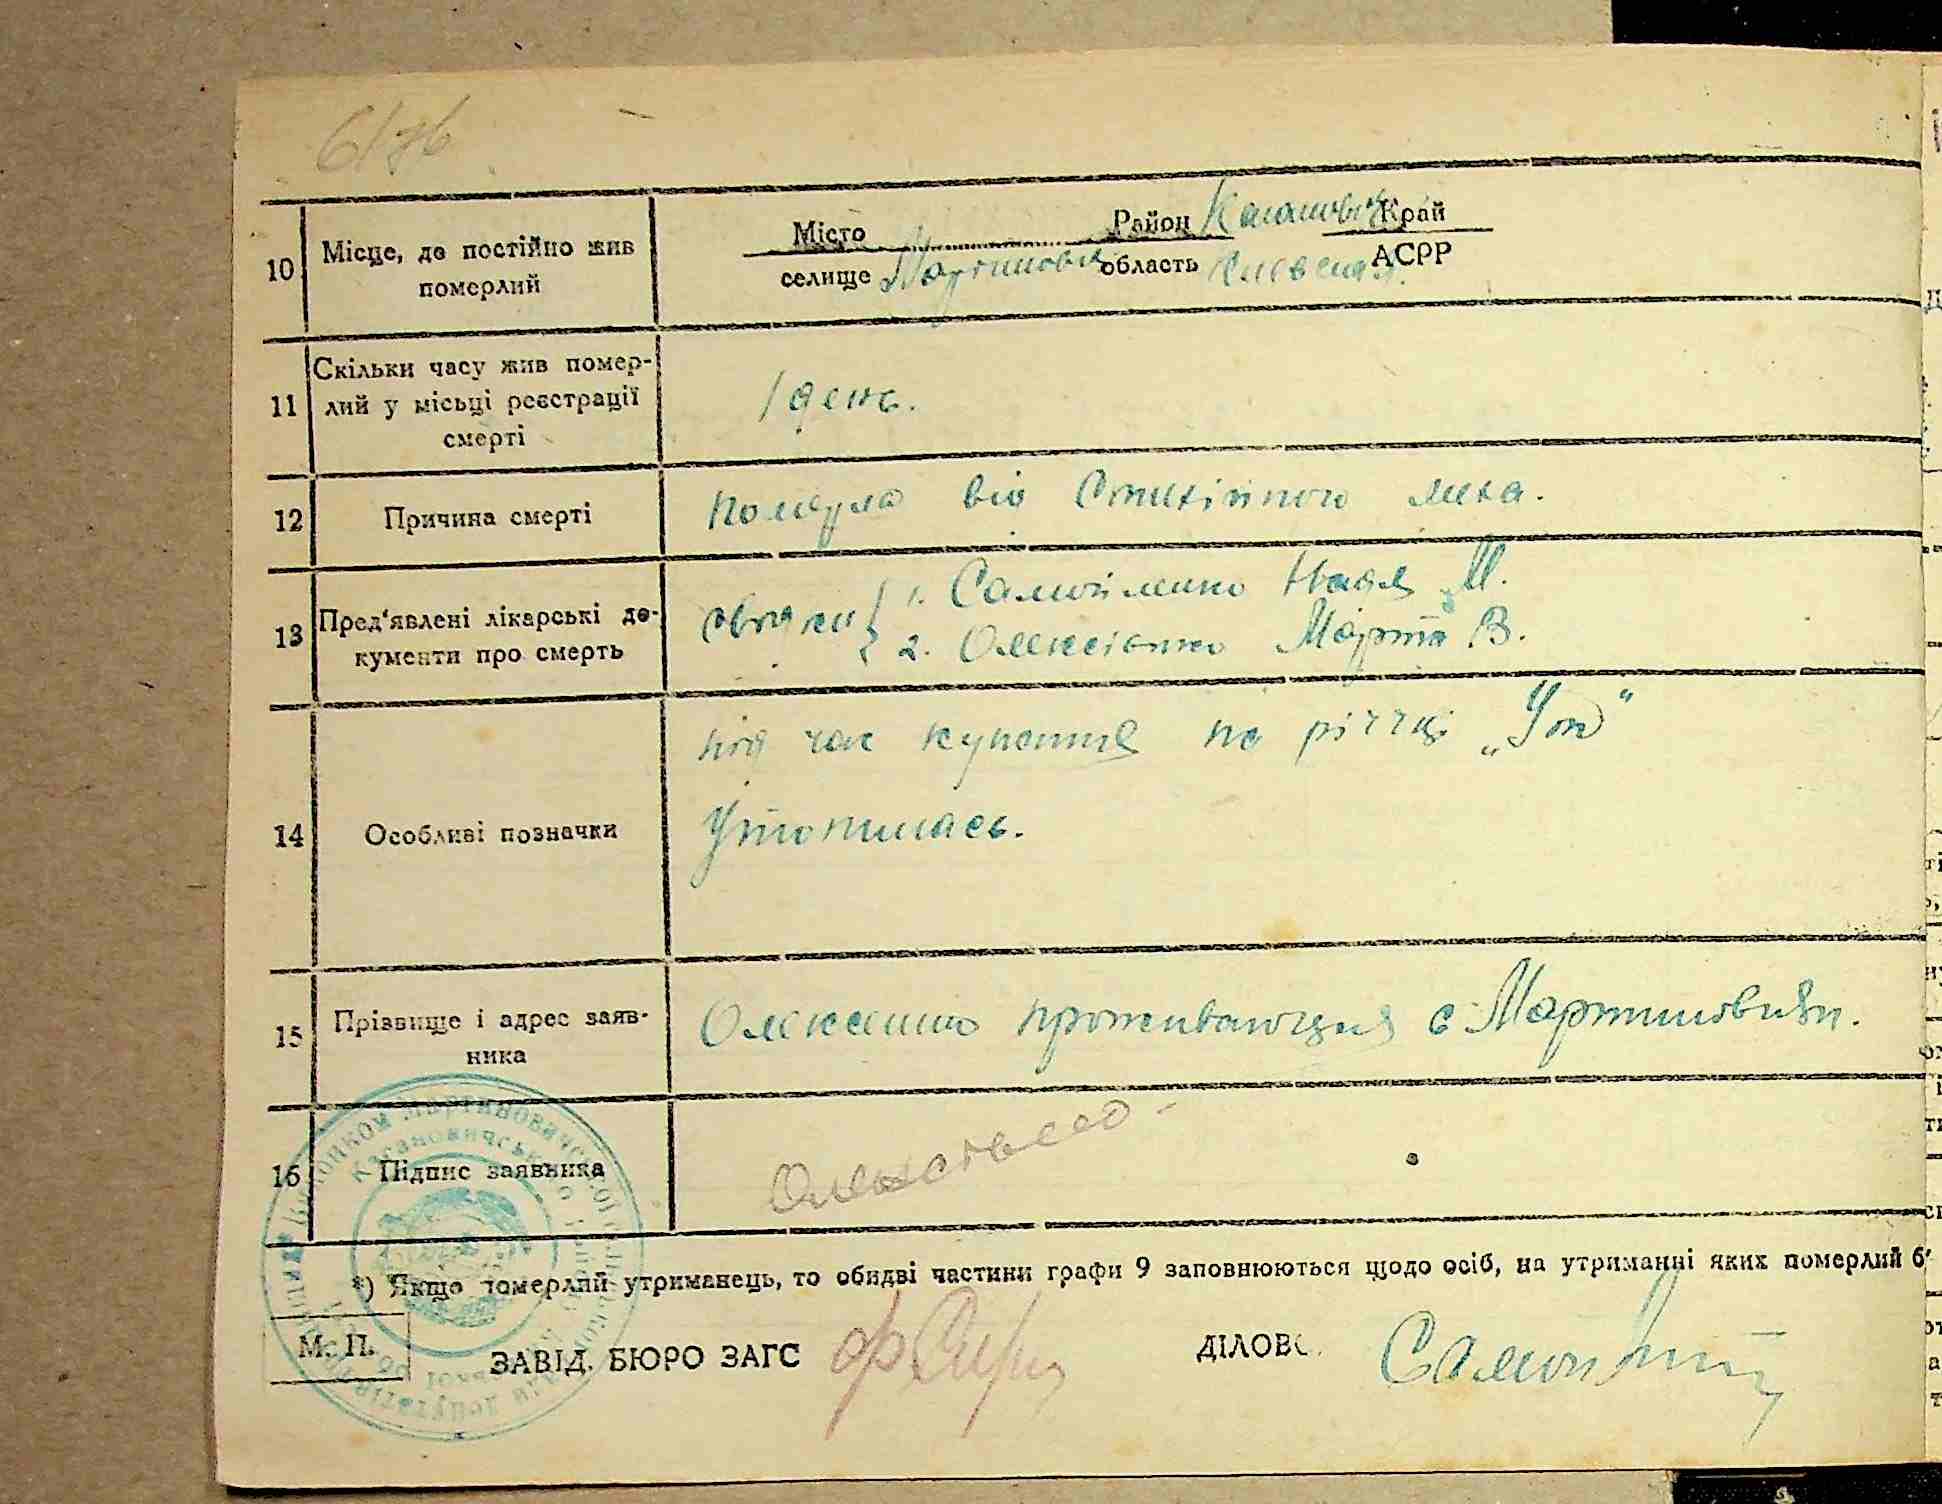 6/76
10 Місце, де постійно жив померлий Місто Район Каганович Край
селище Мартинович область Киевская АСРР
11 Скільки часу жив помер-
лий у місьці реєстрації
смерті
1 день.
12 Причина смерті
Померла від Стихійного лиха.
13 Пред'явлені лікарські до-
кументи про смерть
свідки { 1. Самойленко Надя М.
2. Олексієнко Марта В.
14 Особливі позначки
під час купання на річці „Уж"
Утопилась.
15 Прізвище і адрес заяв-
ника
Олексеенко проживающия с Мартиновичи.
16 Підпис заявника
*) Якщо померлий утриманець, то обидві частини графи 9 заповнюються щодо осіб, на утриманні яких померлий б
М. П. ЗАВІД. БЮРО ЗАГС ДІЛОВ